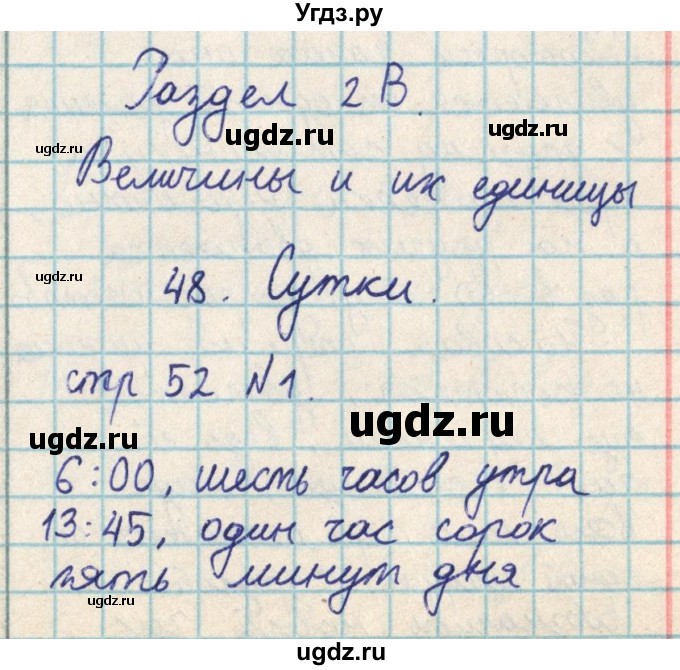 Угдз.ру
Раздел 2В.
ugdz.ru
ugdz.ru
ugdz.ru
Величины и их единицы
ugdz.ru
48. Сутки.
стр 52 №1.
ugdz.ru
ugdz.ru
6:00, шесть часов утра
13:45, один час сорок
пять минут дня
ugdz.ru
ugdz.ru